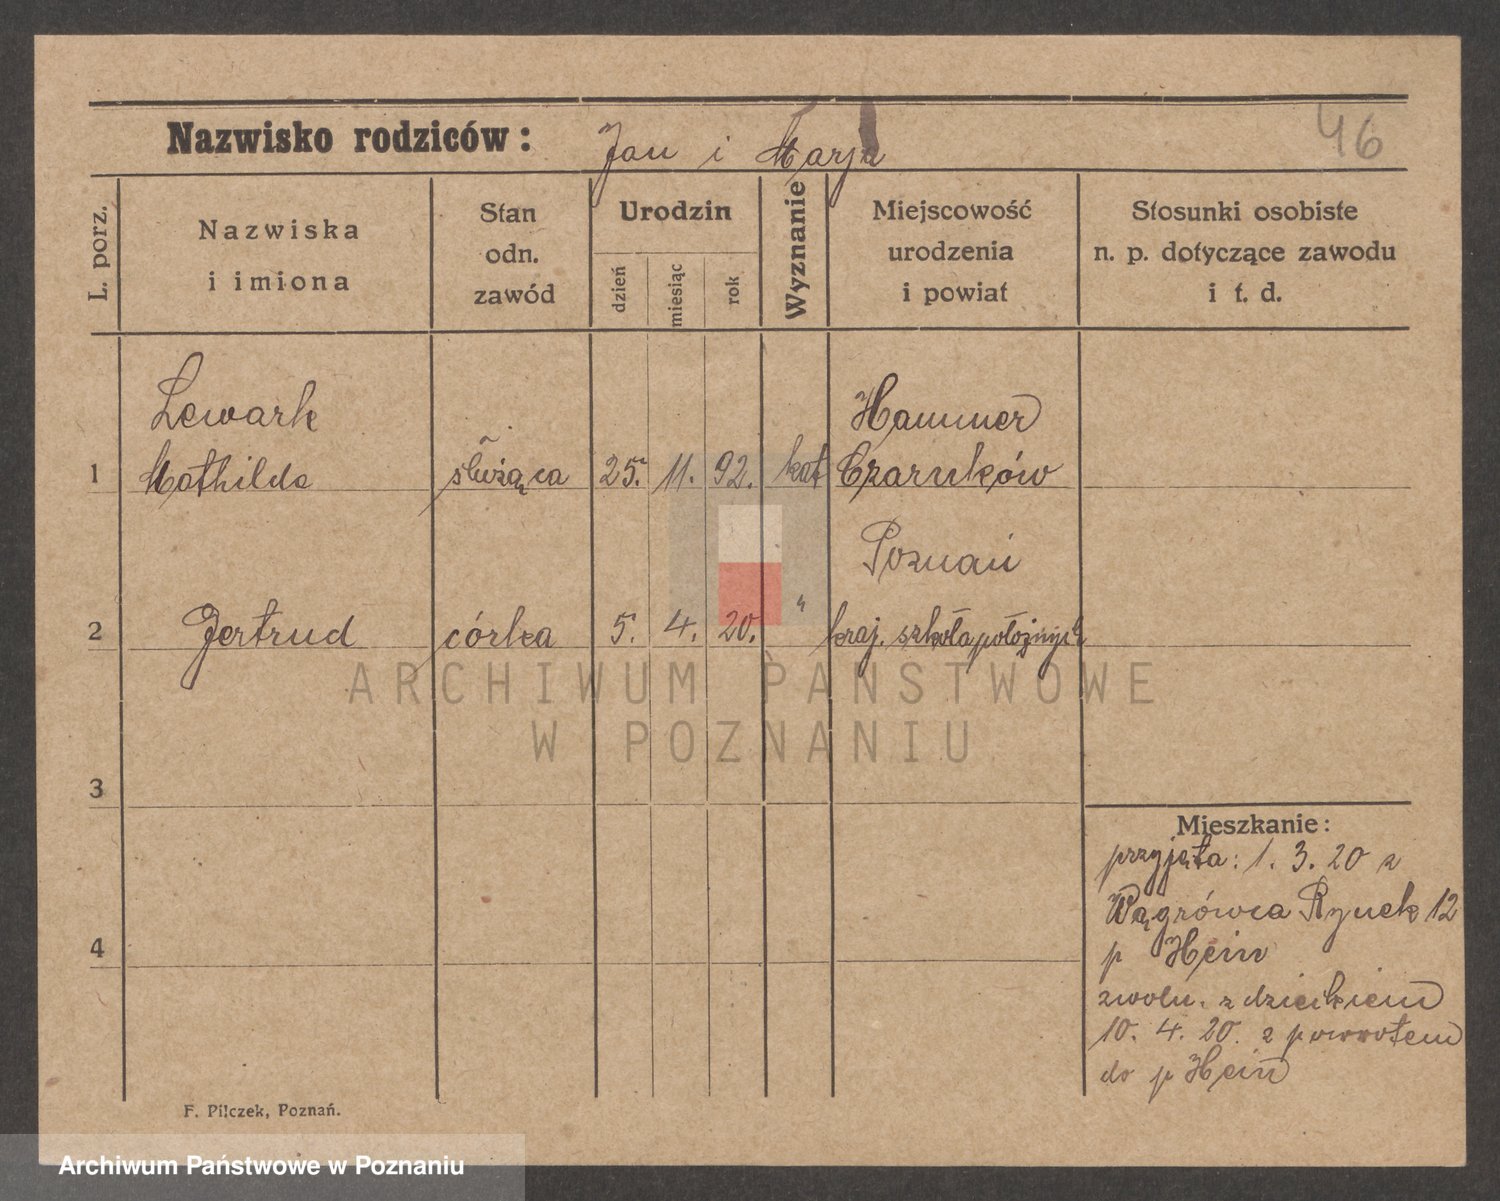 46
Nazwisko rodziców: Jan i Marja
L. porz.
Nazwiska
i imiona
Stan
odn.
zawód
Urodzin
dzień
miesiąc
rok
Wyznanie
Miejscowość
urodzenia
i powiat
Stosunki osobiste
n. p. dotyczące zawodu
i t. d.
Lewark Hammer
1 Mathilda służąca 25. 11. 92. kat Czarnków
Poznań
2 Gertrud córka 5. 4. 20. " kraj. szkoła położnych
ARCHIWUM PAŃSTWOWE
W POZNANIU
3
Mieszkanie:
przyjęta: 1. 3. 20 z
Wągrówca Rynek 12
4
p Hein
zwoln. z dzieckiem
10. 4. 20. z powrotem
do p Hein
F. Pilczek, Poznań.
Archiwum Państwowe w Poznaniu